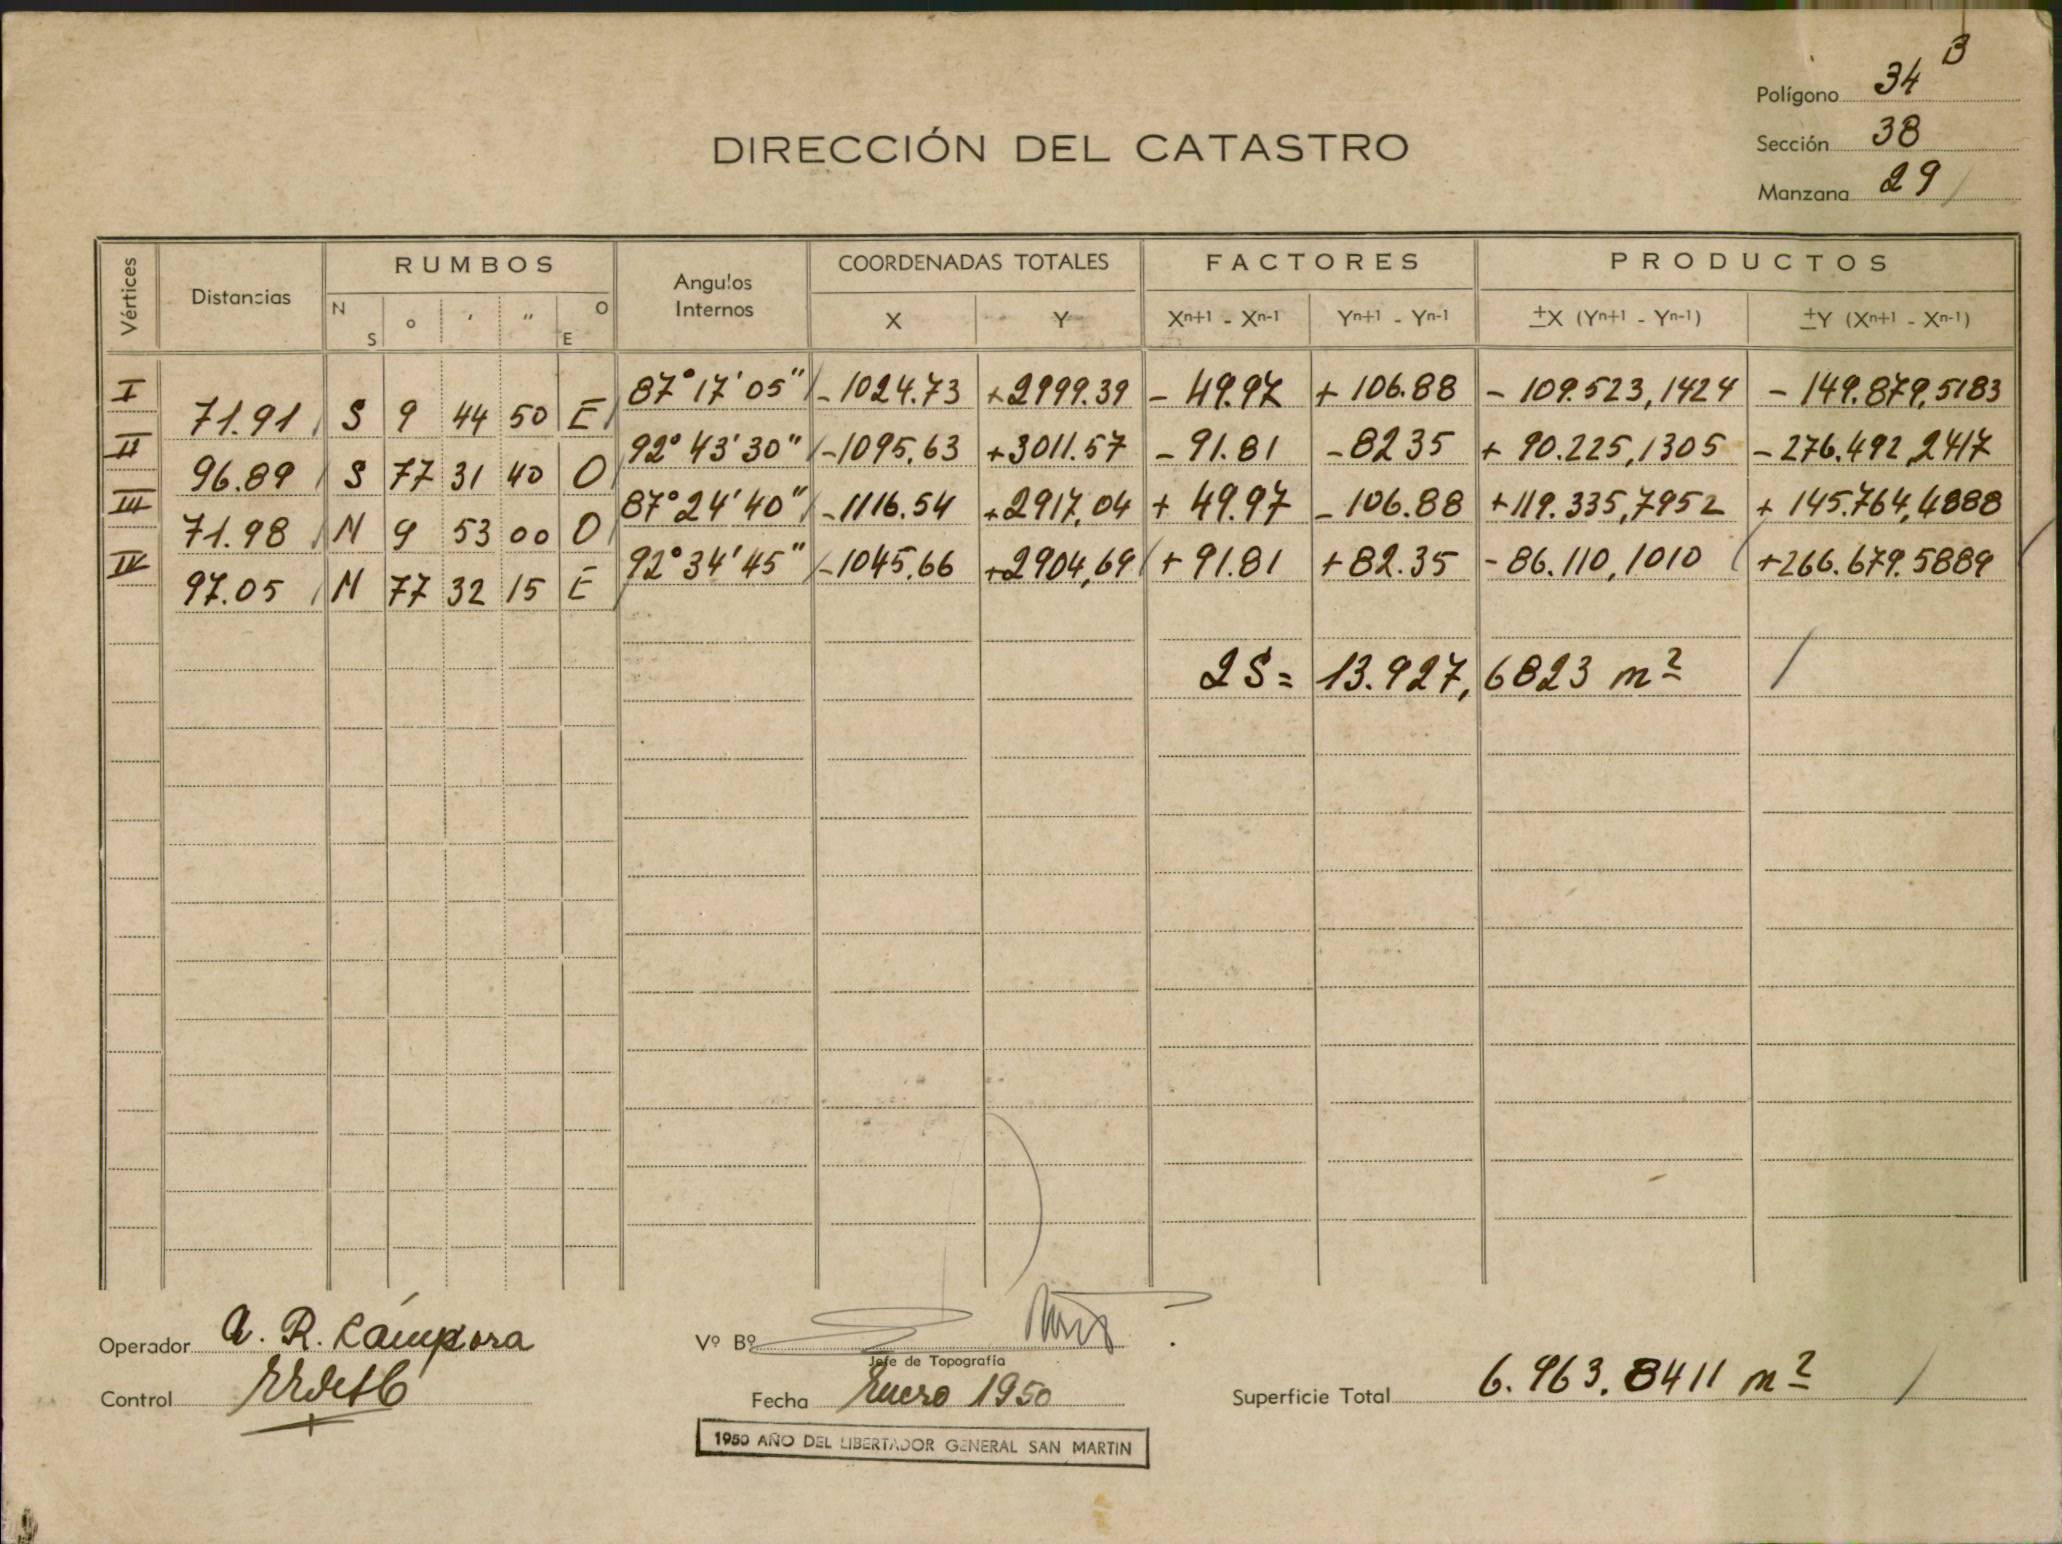 Polígono 34 B
Sección 38
Manzana 29
DIRECCIÓN DEL CATASTRO
Vértices Distancias RUMBOS Angulos Internos COORDENADAS TOTALES FACTORES PRODUCTOS
N S ° ' " O E X Y Xn+1 - Xn-1 Yn+1 - Yn-1 ±X (Yn+1 - Yn-1) ±Y (Xn+1 - Xn-1)
I 87° 17' 05" -1024.73 +2999.39 - 49.97 + 106.88 - 109.523,1424 - 149.879,5183
71.91 S 9 44 50 E
II 92° 43' 30" -1095.63 +3011.57 - 91.81 -82 35 + 90.225,1305 -276.492,2417
96.89 S 77 31 40 O
III 87° 24' 40" -1116.54 +2917,04 + 49.97 - 106.88 +119.335,7952 + 145.764,4888
71.98 N 9 53 00 O
IV 92° 34' 45" -1045.66 +2904,69 + 91.81 +82.35 -86.110,1010 +266.679.5889
97.05 N 77 32 15 E
2S = 13.927,6823 m²
Operador A. R. Cámpora
Vº Bº
Jefe de Topografía
Control
Fecha Enero 1950
Superficie Total 6.963.8411 m²
1950 AÑO DEL LIBERTADOR GENERAL SAN MARTIN